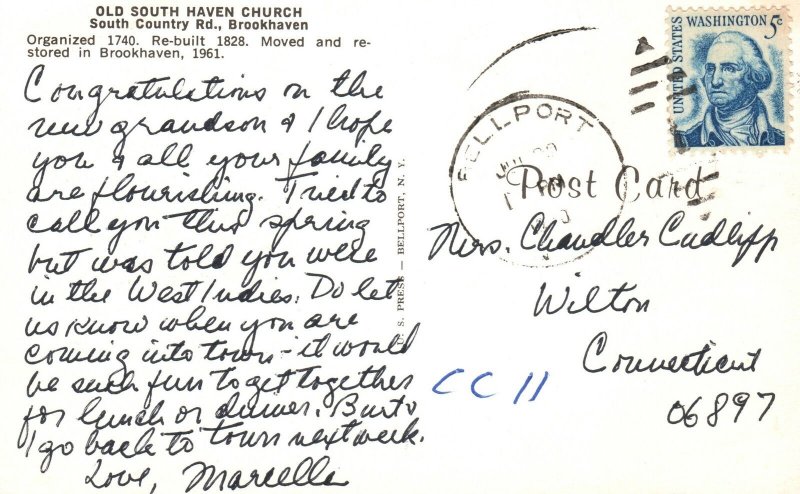 OLD SOUTH HAVEN CHURCH
South Country Rd., Brookhaven
Organized 1740. Re-built 1828. Moved and re-
stored in Brookhaven, 1961.
Congratulations on the
new grandson & I hope
you & all your family
are flourishing. Tried to
call you this spring
but was told you were
in the West Indies. Do let
us know when you are
coming into town - it would
be such fun to get together
for lunch or dinner. Burt &
I go back to town next week.
Love, Marcella
U. S. PRESS — BELLPORT, N. Y.
UNITED STATES
WASHINGTON 5c
BELLPORT
Post Card
Mrs. Chandler Cudlipp
Wilton
Connecticut
06897
CC 11